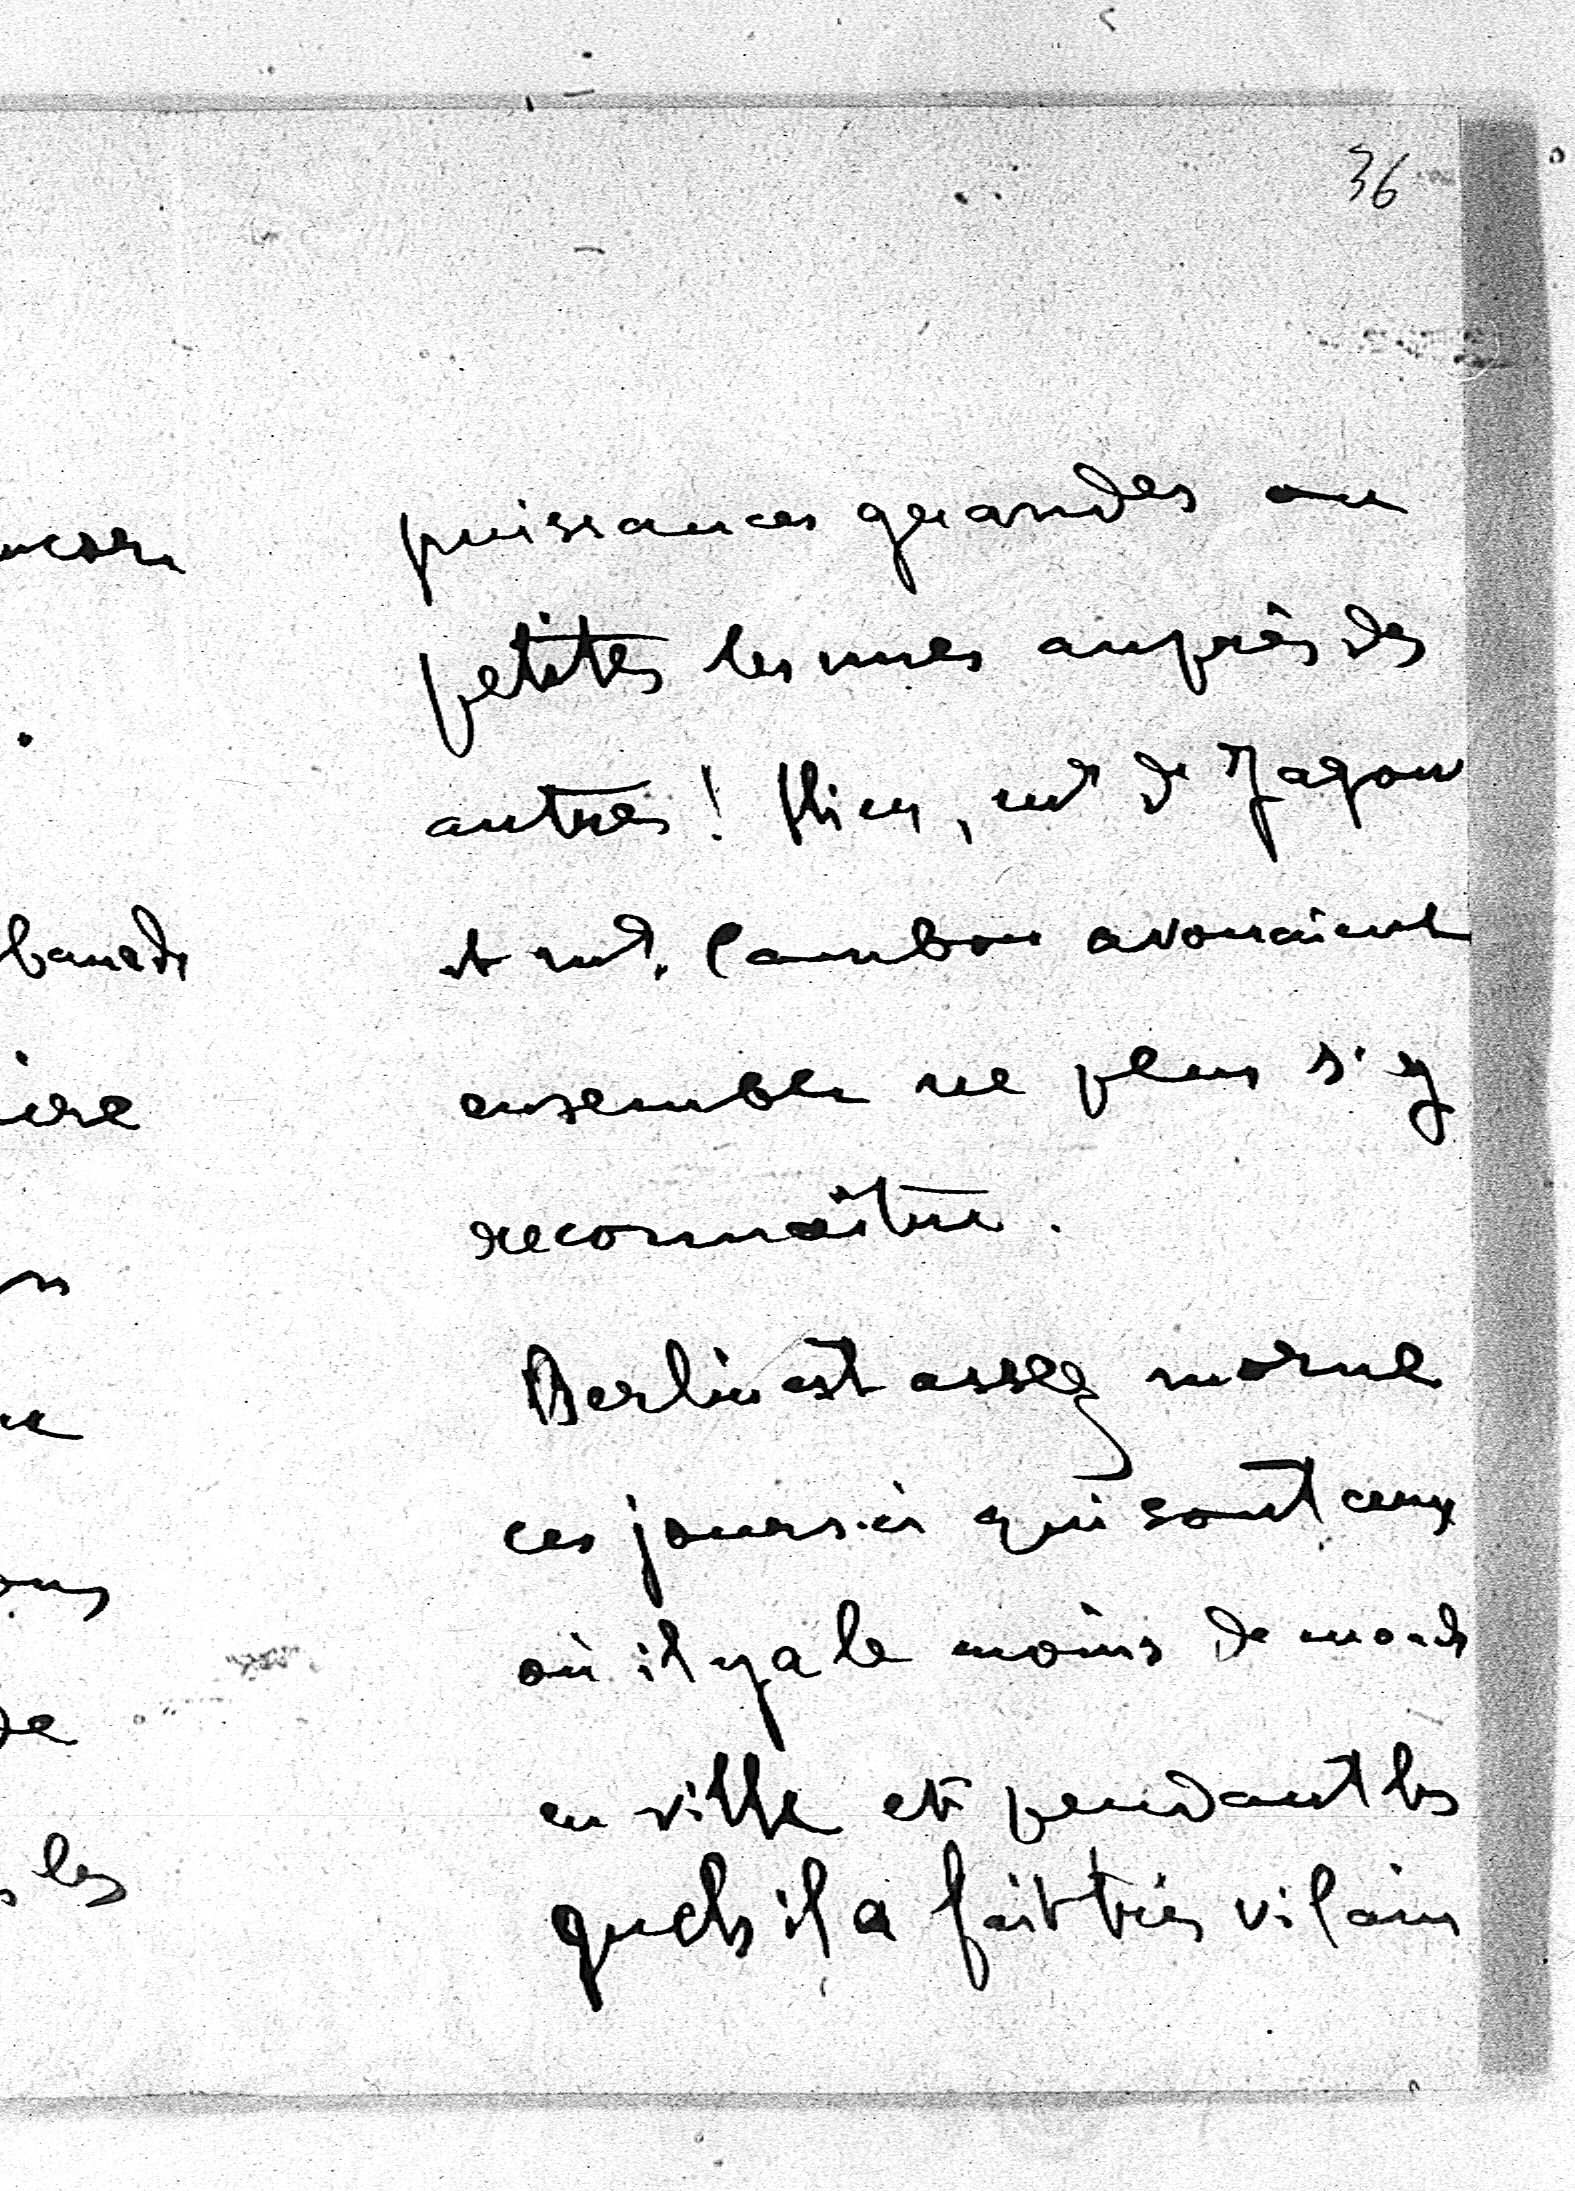 36
puissances grandes ou
petites les unes auprès des
autres ! Hier, Mr de Jagow
et Mr. Cambon avouaient
ensemble ne plus s'y
reconnaître.
Berlin est assez morne
ces jours-ci qui sont ceux
où il y a le moins de monde
en ville et pendant les
quels il a fait très vilain
les